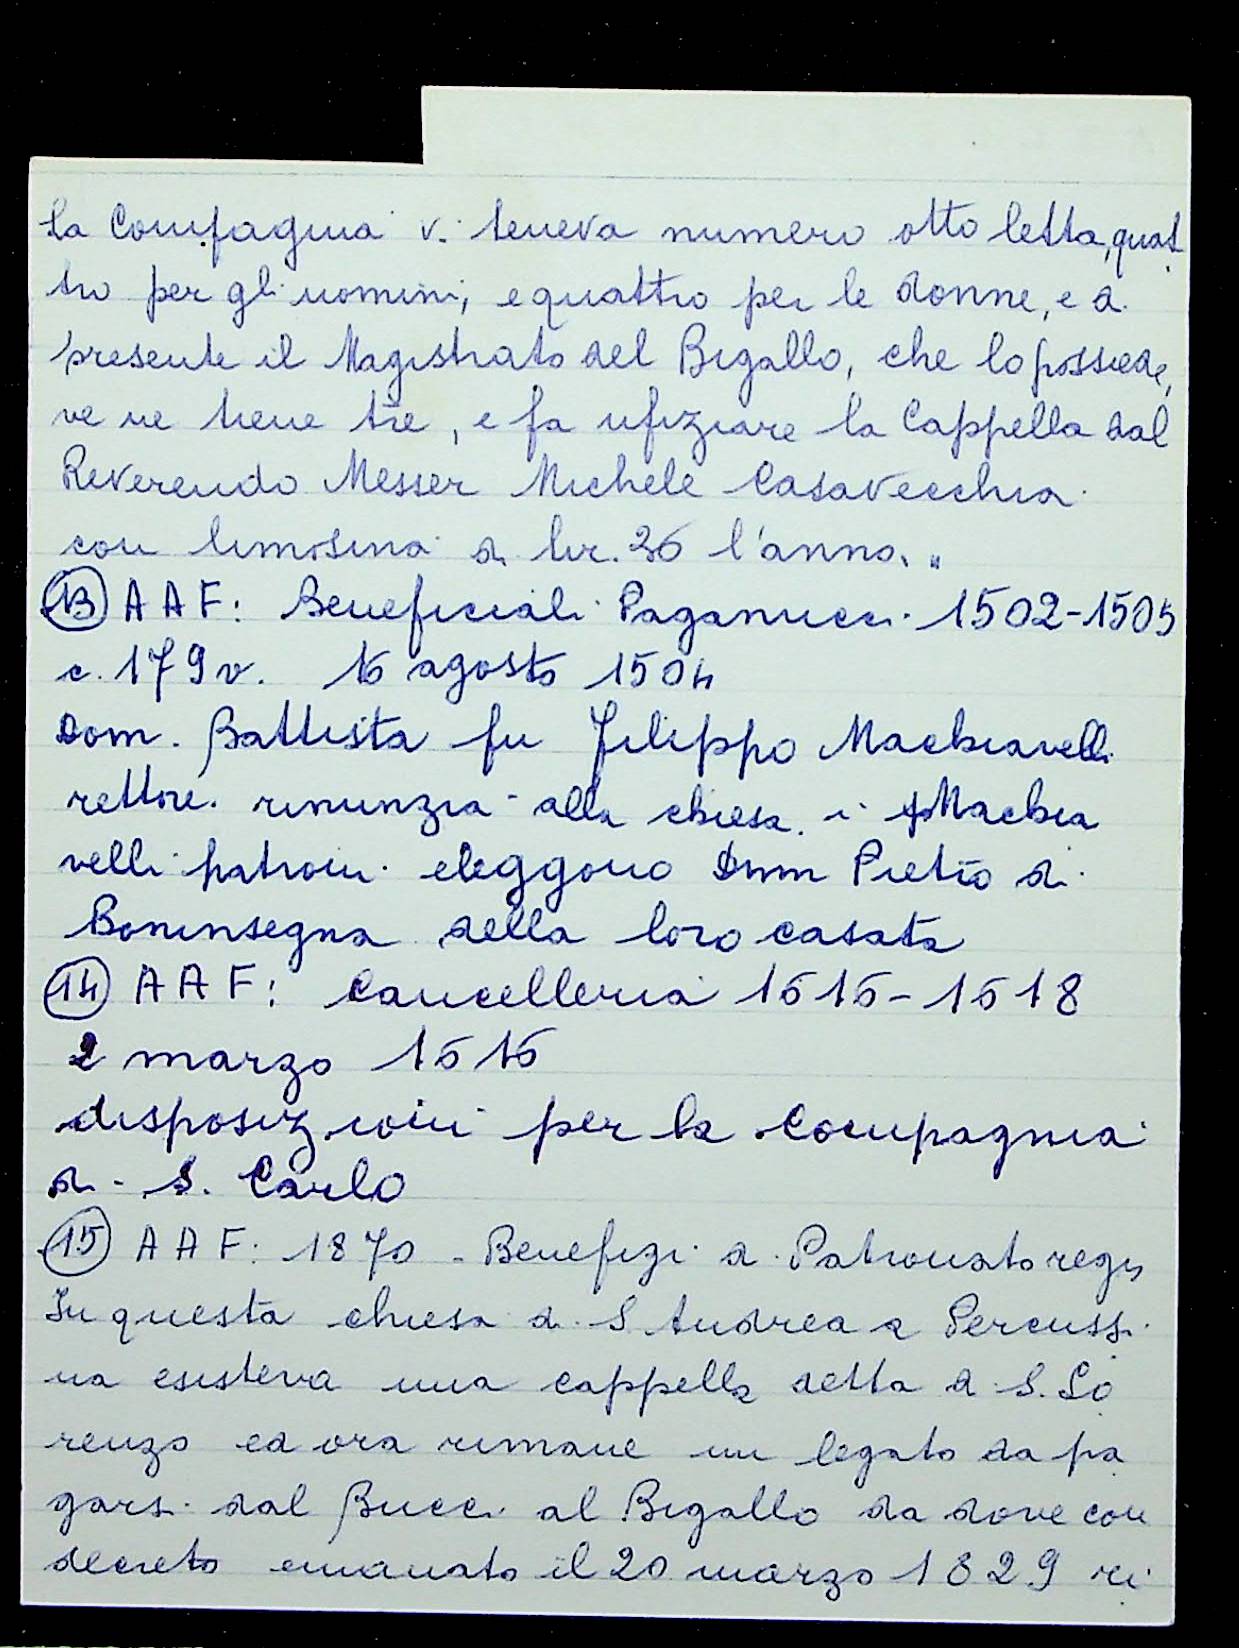 La Compagnia vi teneva numero otto letta, quat
tro per gli uomini, e quattro per le donne, e di
presente il Magistrato del Bigallo, che lo possiede,
ve ne tiene tre, e fa ufiziare la Cappella dal
Reverendo Messer Michele Casavecchia
con limosina di lir. 36 l'anno. "
13 A A F: Beneficiali Paganucci 1502-1505
c. 179 v. 16 agosto 1504
Dom. Battista fu Filippo Machiavelli
rettore rinunzia alla chiesa. i Machia
velli patroni eleggono Dnm Pietro di
Boninsegna della loro casata
14 A A F: Cancelleria 1616-1618
2 marzo 1616
disposizioni per la Compagnia
di S. Carlo
15 A A F: 1870 - Benefizi di Patronato regio
In questa chiesa di S Andrea a Percussi
na esisteva una cappella detta di S. Lo
renzo ed ora rimane un legato da pa
garsi dal Bucci al Bigallo da dove con
decreto emanato il 20 marzo 1829 ri